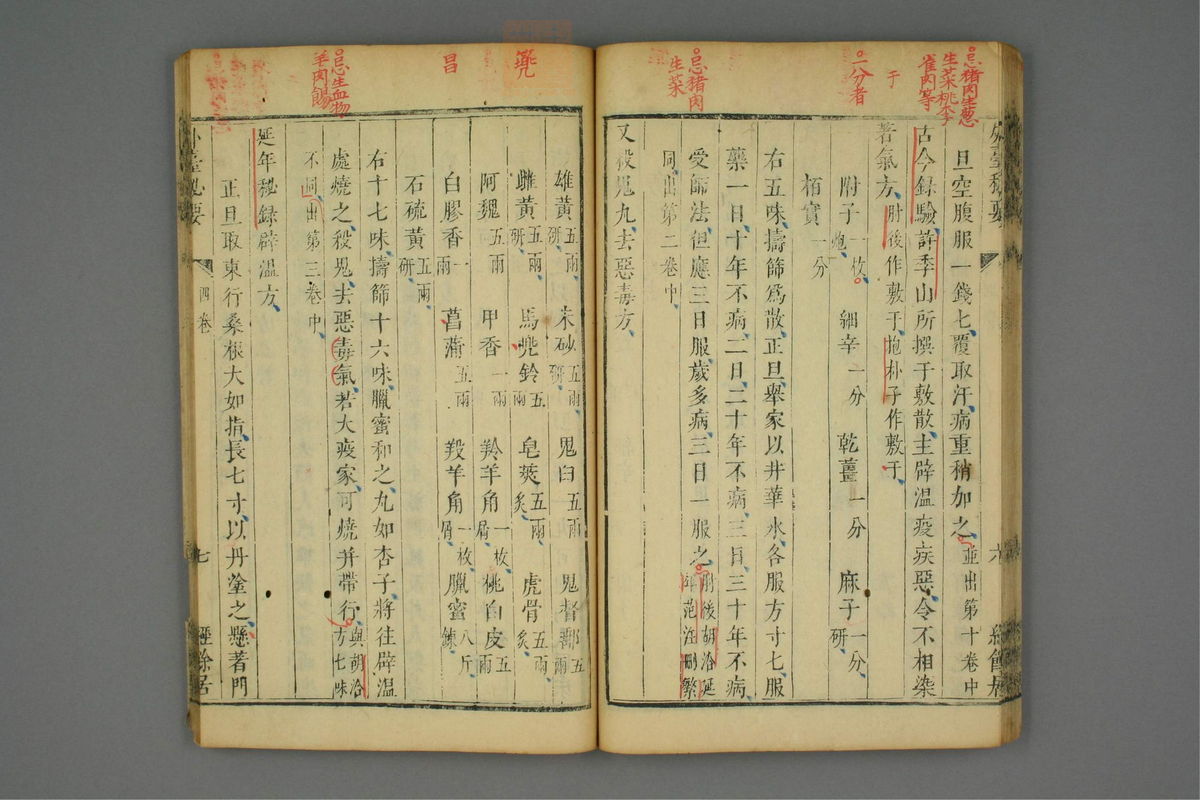 忌猪肉生葱
生菜桃李
雀肉等
于
一分者
忌猪肉
生菜
旦空腹服一錢匕覆取汗病重稍加之並出第十卷中
古今錄驗許季山所撰于敷散主辟溫疫疾惡令不相染
著氣方肘後作敷于抱朴子作敷于
附子一枚炮 細辛一分 乾薑一分 麻子一分研
栢實一分
右五味擣篩爲散正旦舉家以井華水各服方寸匕服
藥一日十年不病二日二十年不病三日三十年不病
受師法但應三日服歲多病三日一服之肘後胡洽延年范汪刪繁
同出第二卷中
又殺鬼丸去惡毒方
兠
昌
忌生血物
羊肉餳
雄黃五兩研 朱砂五兩研 鬼臼五兩 鬼督郵五兩
雌黃五兩研 馬兠鈴五兩 皂莢五兩炙 虎骨五兩炙
阿魏五兩 甲香一兩 羚羊角一枚屑 桃白皮五兩
白膠香一兩 菖蒲五兩 羖羊角一枚屑 臘蜜八斤鍊
石硫黃五兩研
右十七味擣篩十六味臘蜜和之丸如杏子將往辟溫
處燒之殺鬼去惡毒氣若大疫家可燒并帶行與胡洽方七味
不同出第三卷中
延年秘録辟溫方
正旦取東行桑根大如指長七寸以丹塗之懸著門
外臺秘要
四卷
七
經餘居